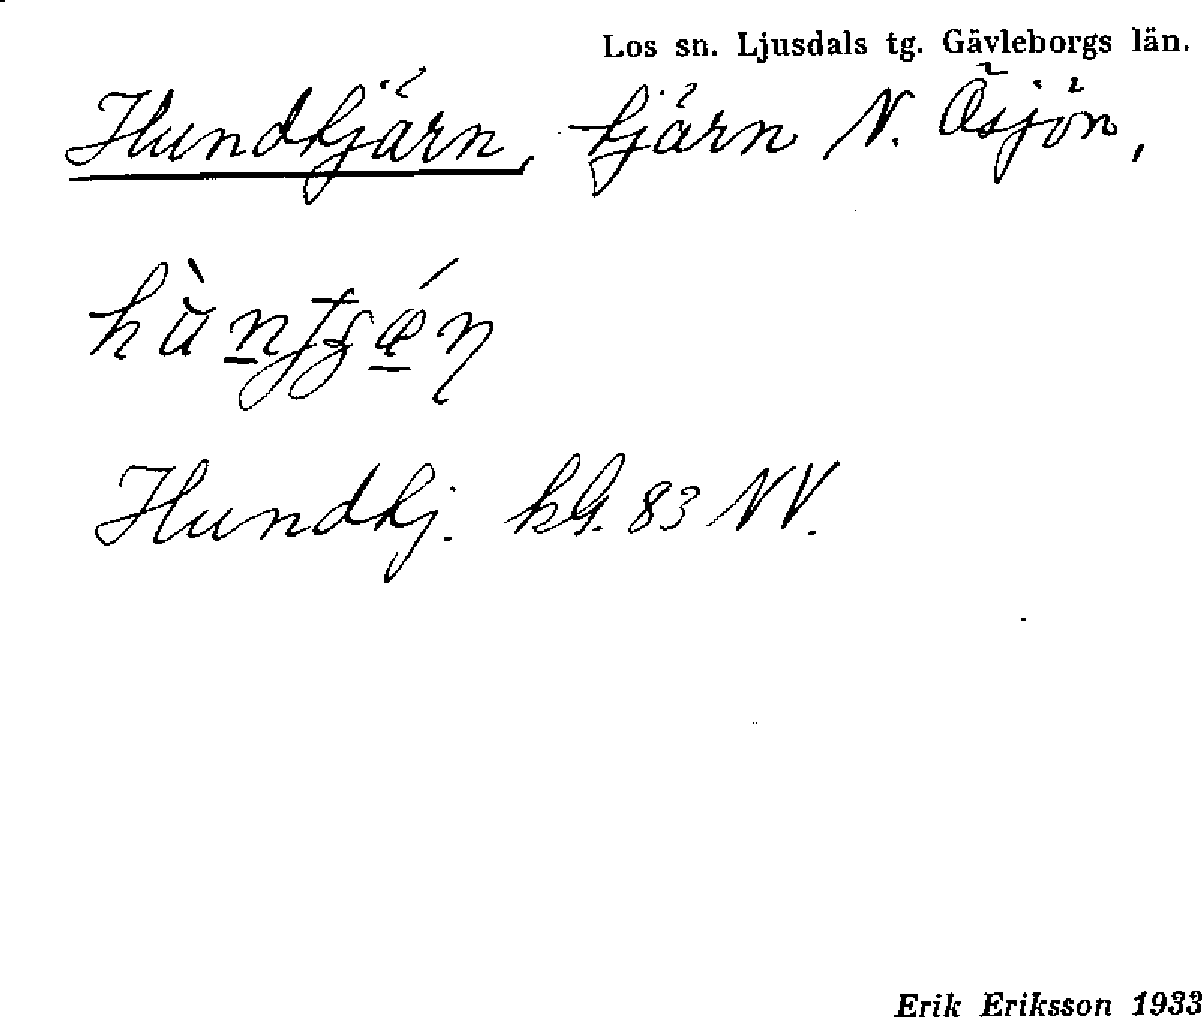 Los sn. Ljusdals tg. Gävleborgs län.
Hundtjärn, tjärn N. Åsjön,
Hundtj. kbl. 83 NV.
Erik Eriksson 1933